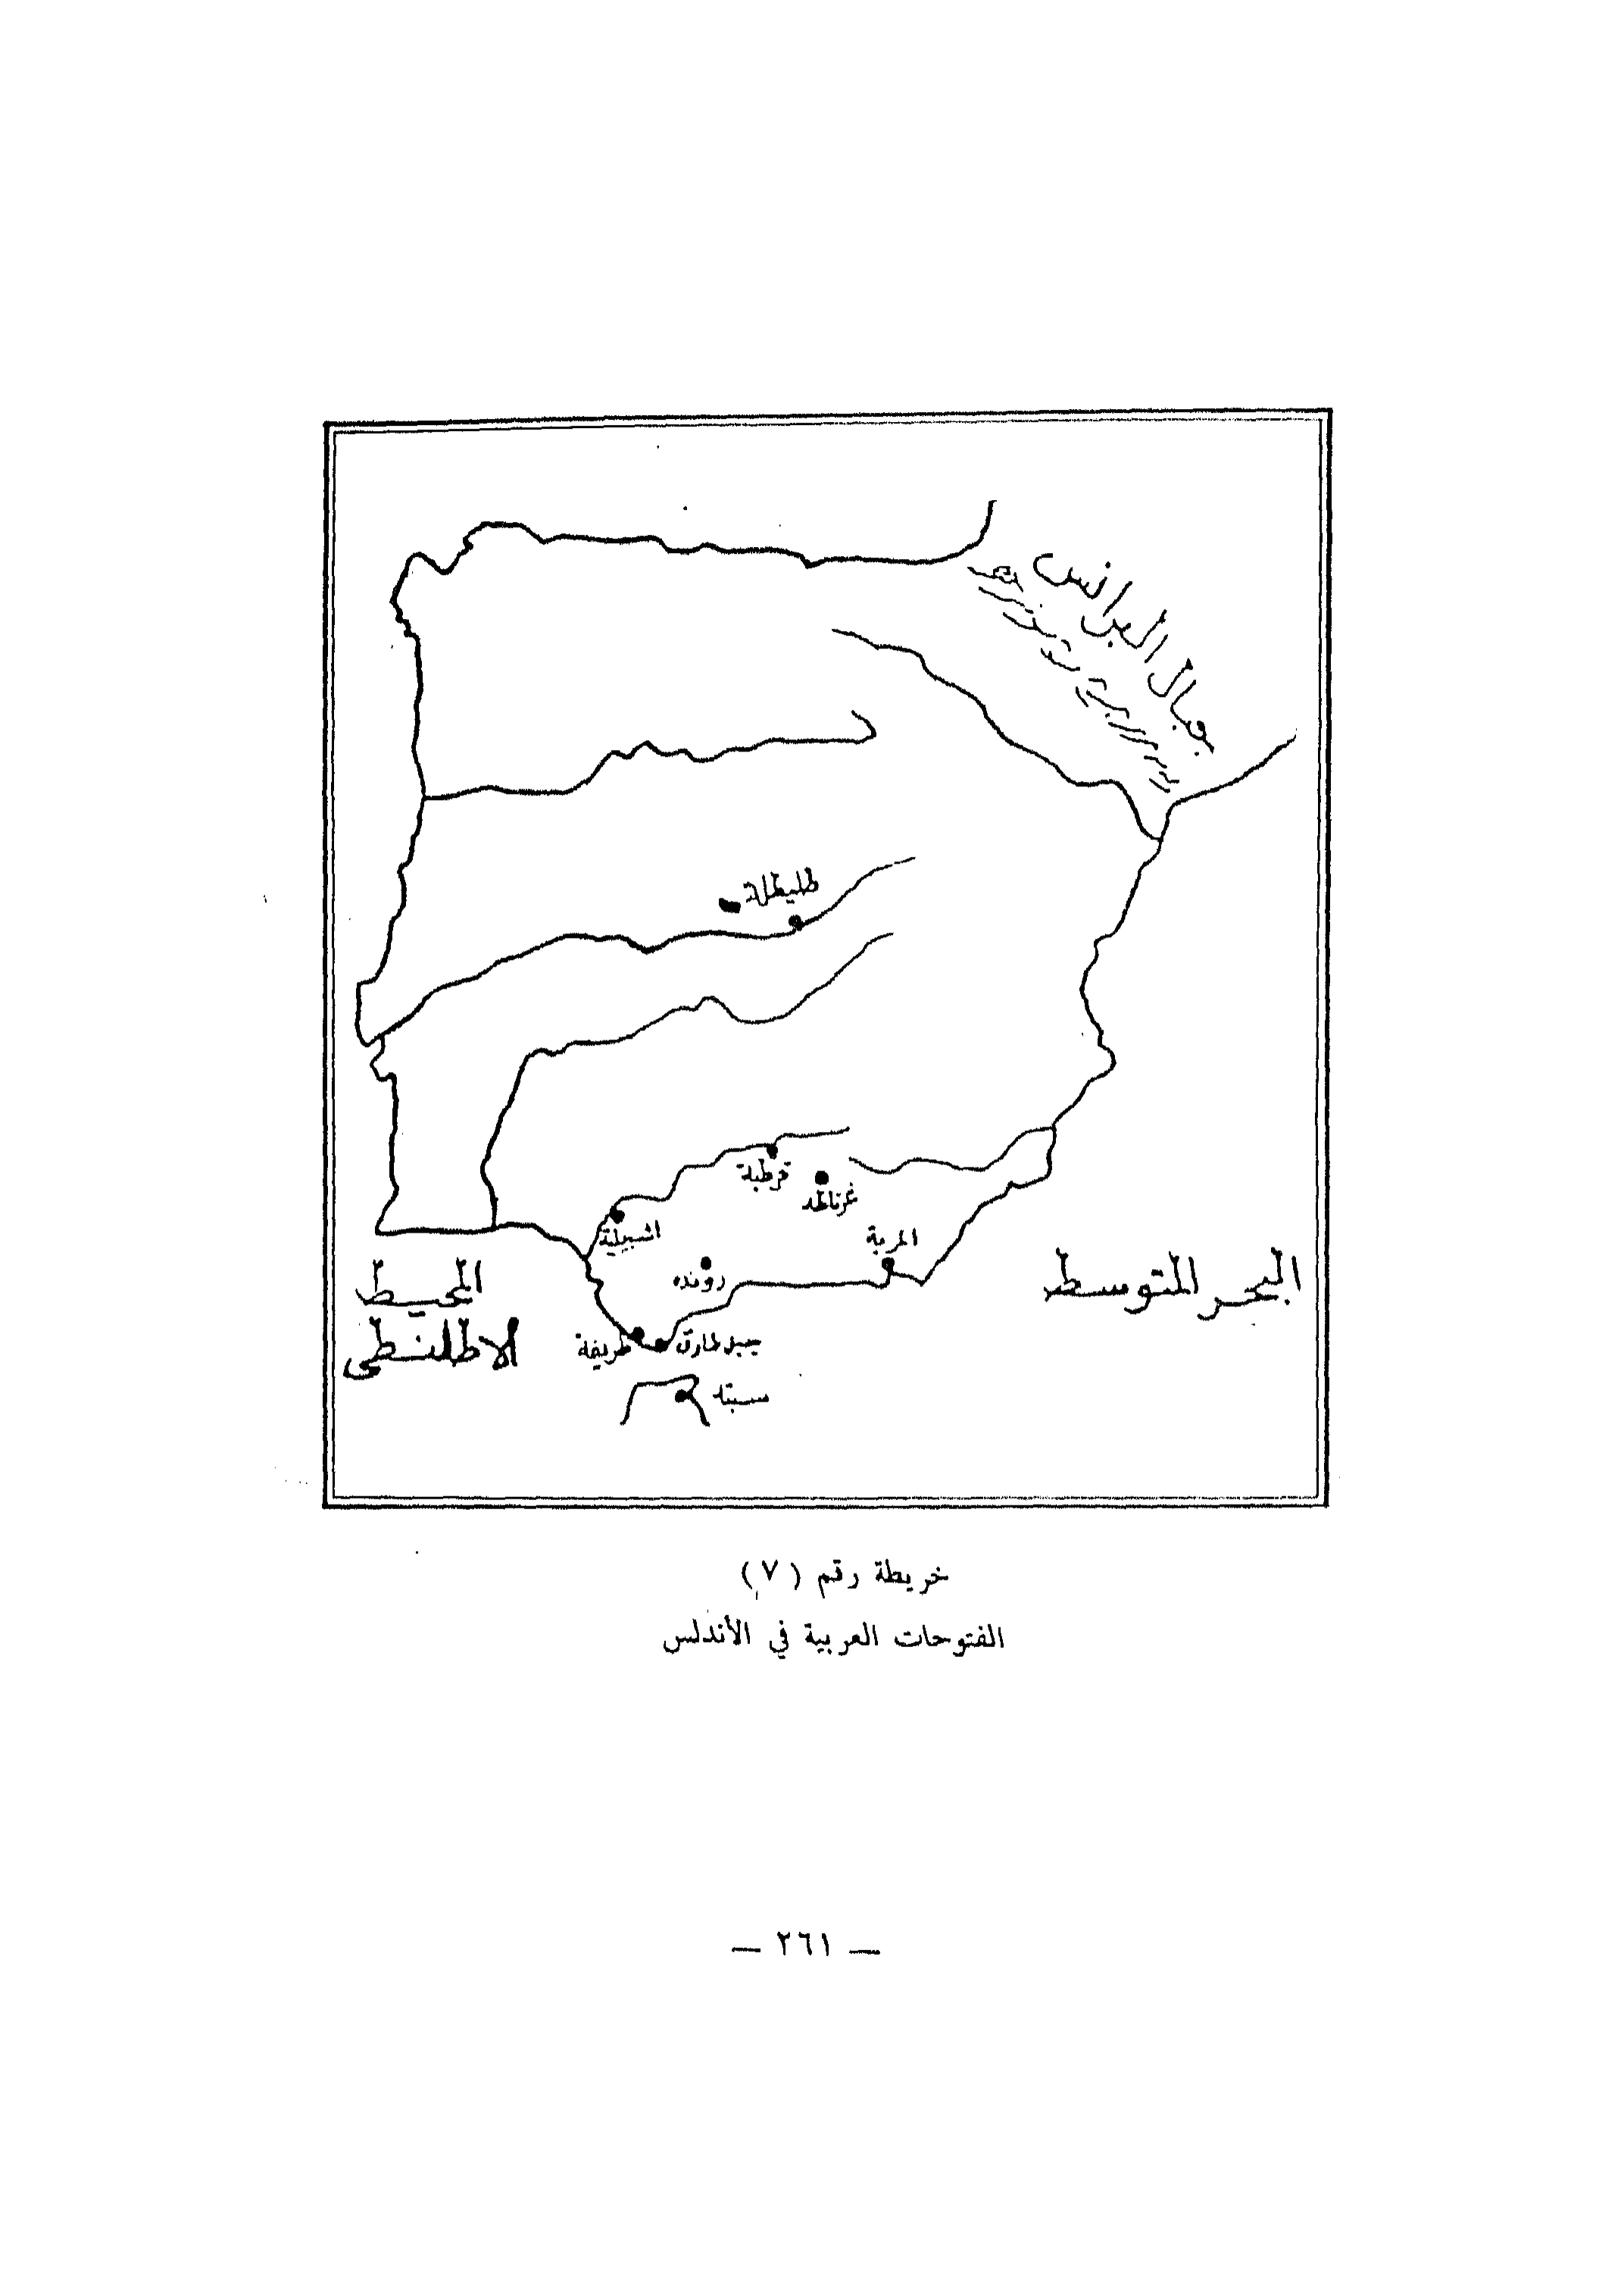 جبال البرانس
طليطلة
قرطبة
غرناطه
اشبيلية
المرية
رونده
البحر المتوسط
المحيط
الاطلنطى
جبل طارق
طريفة
سبته
خريطة رقم (٧)
الفتوحات العربية في الأندلس
— ٢٦١ —